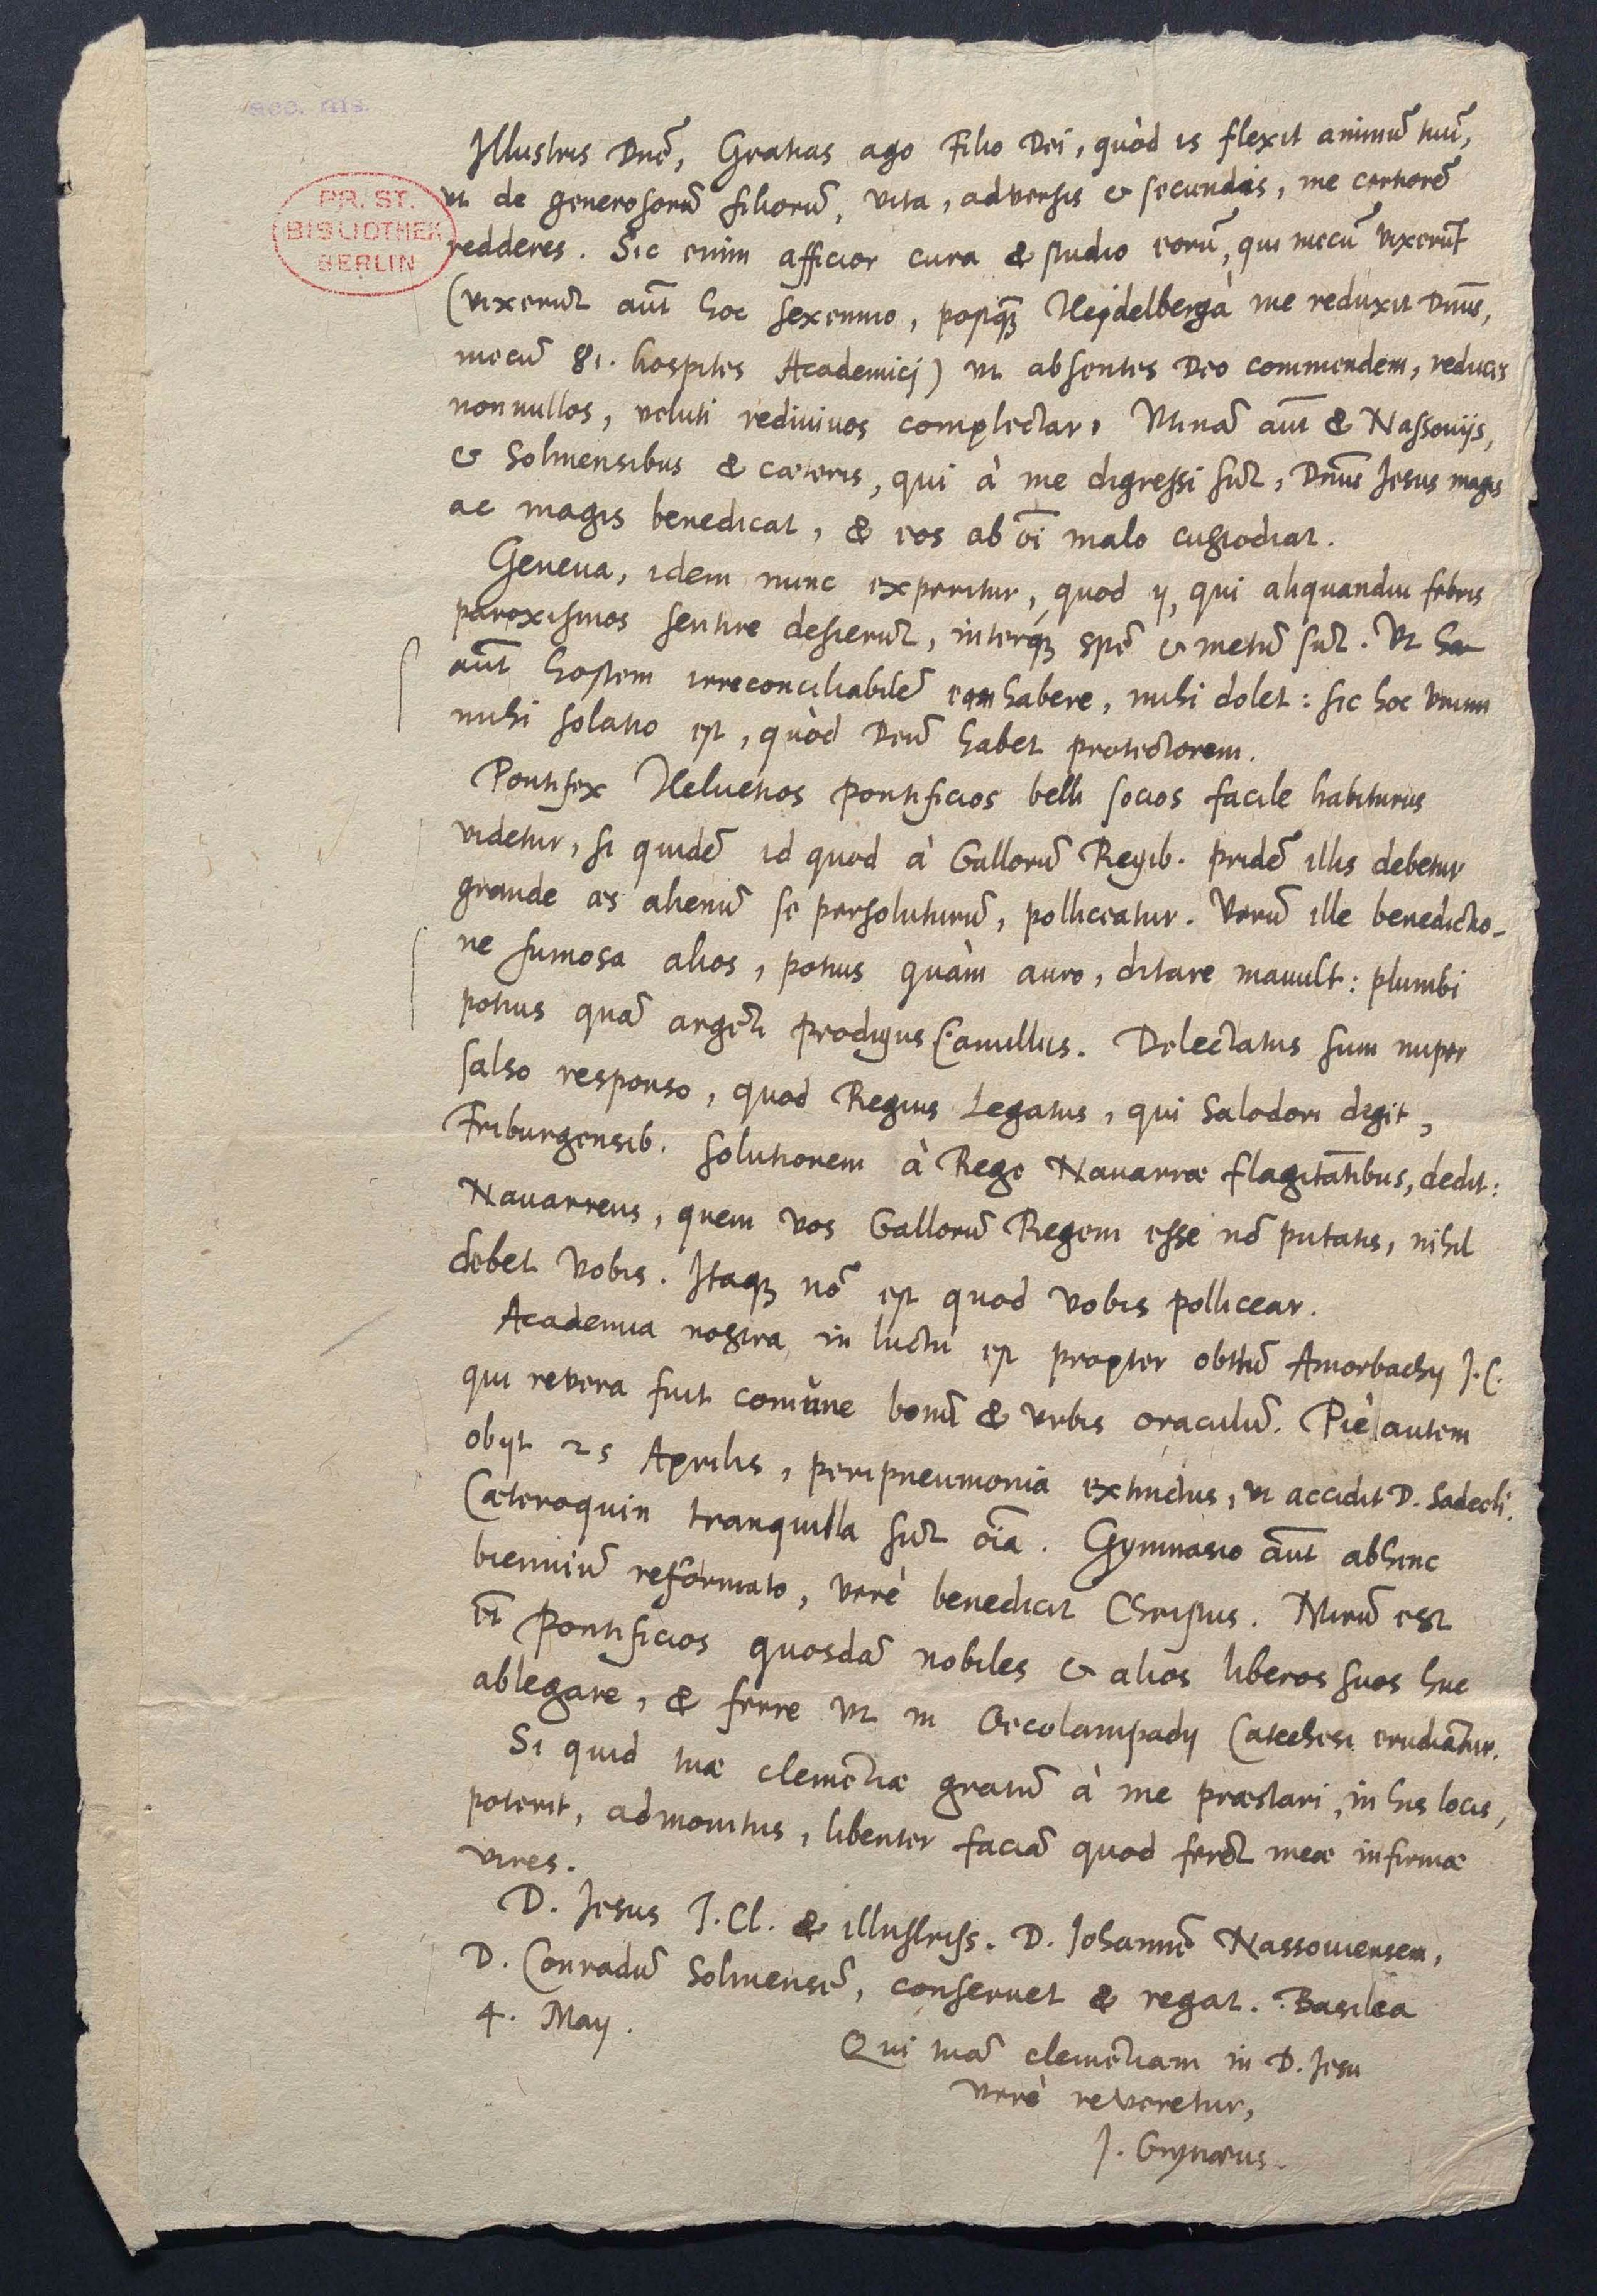 acc. ms.
PR. ST.
BIBLIOTHEK
BERLIN
Illustris Dnē, Gratias ago Filio Dei, quòd is flexit animū tuū,
ut de generosorū filiorū, vita, adversis & secundis, me certiorē
redderes. Sic enim afficior cura & studio eorū, qui mecū vixerūt
(vixerūt aūt hoc sexennio, postq̄ꝫ Heydelbergà me reduxit Dnūs,
mecū 81. hospites Academicj) ut absentes Deo commendem, reduces
nonnullos, veluti redivivos complectar. Utinā aūt & Nassoviis,
& Solmensibus & cæteris, qui à me digressi sūt, Dnūs Jesus magis
ac magis benedicat, & eos ab oī malo custodiat.
Geneua, idem nunc experitur, quod ij, qui aliquandiu febris
paroxismos sentire desierūt, interqꝫ spē & metū sūt. Ut
aūt hostem irreconciliabilē eam habere, mihi dolet: sic hoc unum
mihi solatio est, quòd Deū habet protectorem.
Pontifex Helvetios pontificios belli socios facile habiturus
videtur, si quidē id quod à Gallorū Regib. pridē illis debetur
grande æs alienū se persoluturū, polliceatur. Verū ille benedictio-
ne fumosa alios, potius quàm auro, ditare mavult: plumbi
potius quā argēti prodigus Camillus. Delectatus sum nuper
salso responso, quod Regius Legatus, qui Salodori degit,
Friburgensib. solutionem à Rege Navarræ flagitātibus, dedit:
Navarreus, quem vos Gallorū Regem esse nō putatis, nihil
debet vobis. Itaqꝫ nō est quod vobis pollicear.
Academia nostra in luctu est propter obitū Amorbachij J.C.
qui revera fuit comūne bonū & urbis oraculū. Piè autem
obijt 25 Aprilis, peripneumonia extinctus, ut accidit D. Sadeeli.
Cæteroquin tranquilla sūt oīa. Gymnasio aūt abhinc
bienniū reformato, verè benedicit Christus. Mirū est
et̄ Pontificios quosdā nobiles & alios liberos suos huc
ablegare, & ferre ut in Oecolampadij Catechesi erudiātur.
Si quid tuæ clemētiæ gratū à me præstari, in his locis,
poterit, admonitus, libenter faciā quod ferēt meæ infirmæ
vires.
D. Jesus J. Cl. & illustriss. D. Johannē Nassoviensem,
D. Conradū Solmensē, conservet & regat. Basilea
4. Maij.
Qui tuā clemētiam in D. Jesu
verè reveretur,
J. Grynæus.